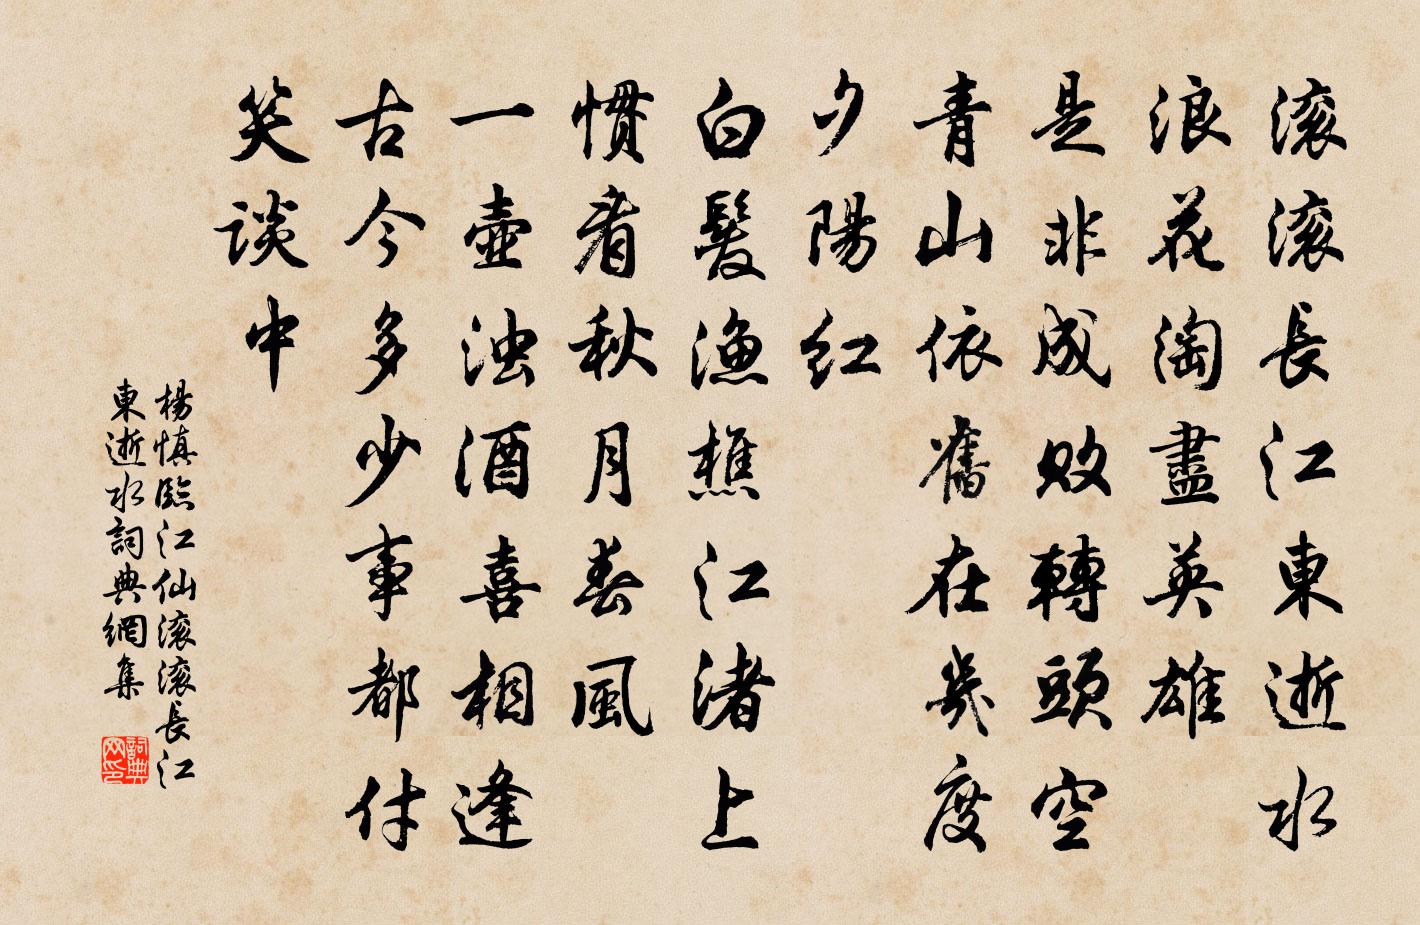 滚滚長江東逝水
浪花淘盡英雄
是非成敗轉頭空
青山依舊在幾度
夕陽紅
白髮漁樵江渚上
慣看秋月春風
一壺浊酒喜相逢
古今多少事都付
笑談中
楊慎臨江仙滚滚長江
東逝水詞典網集
詞典
网印